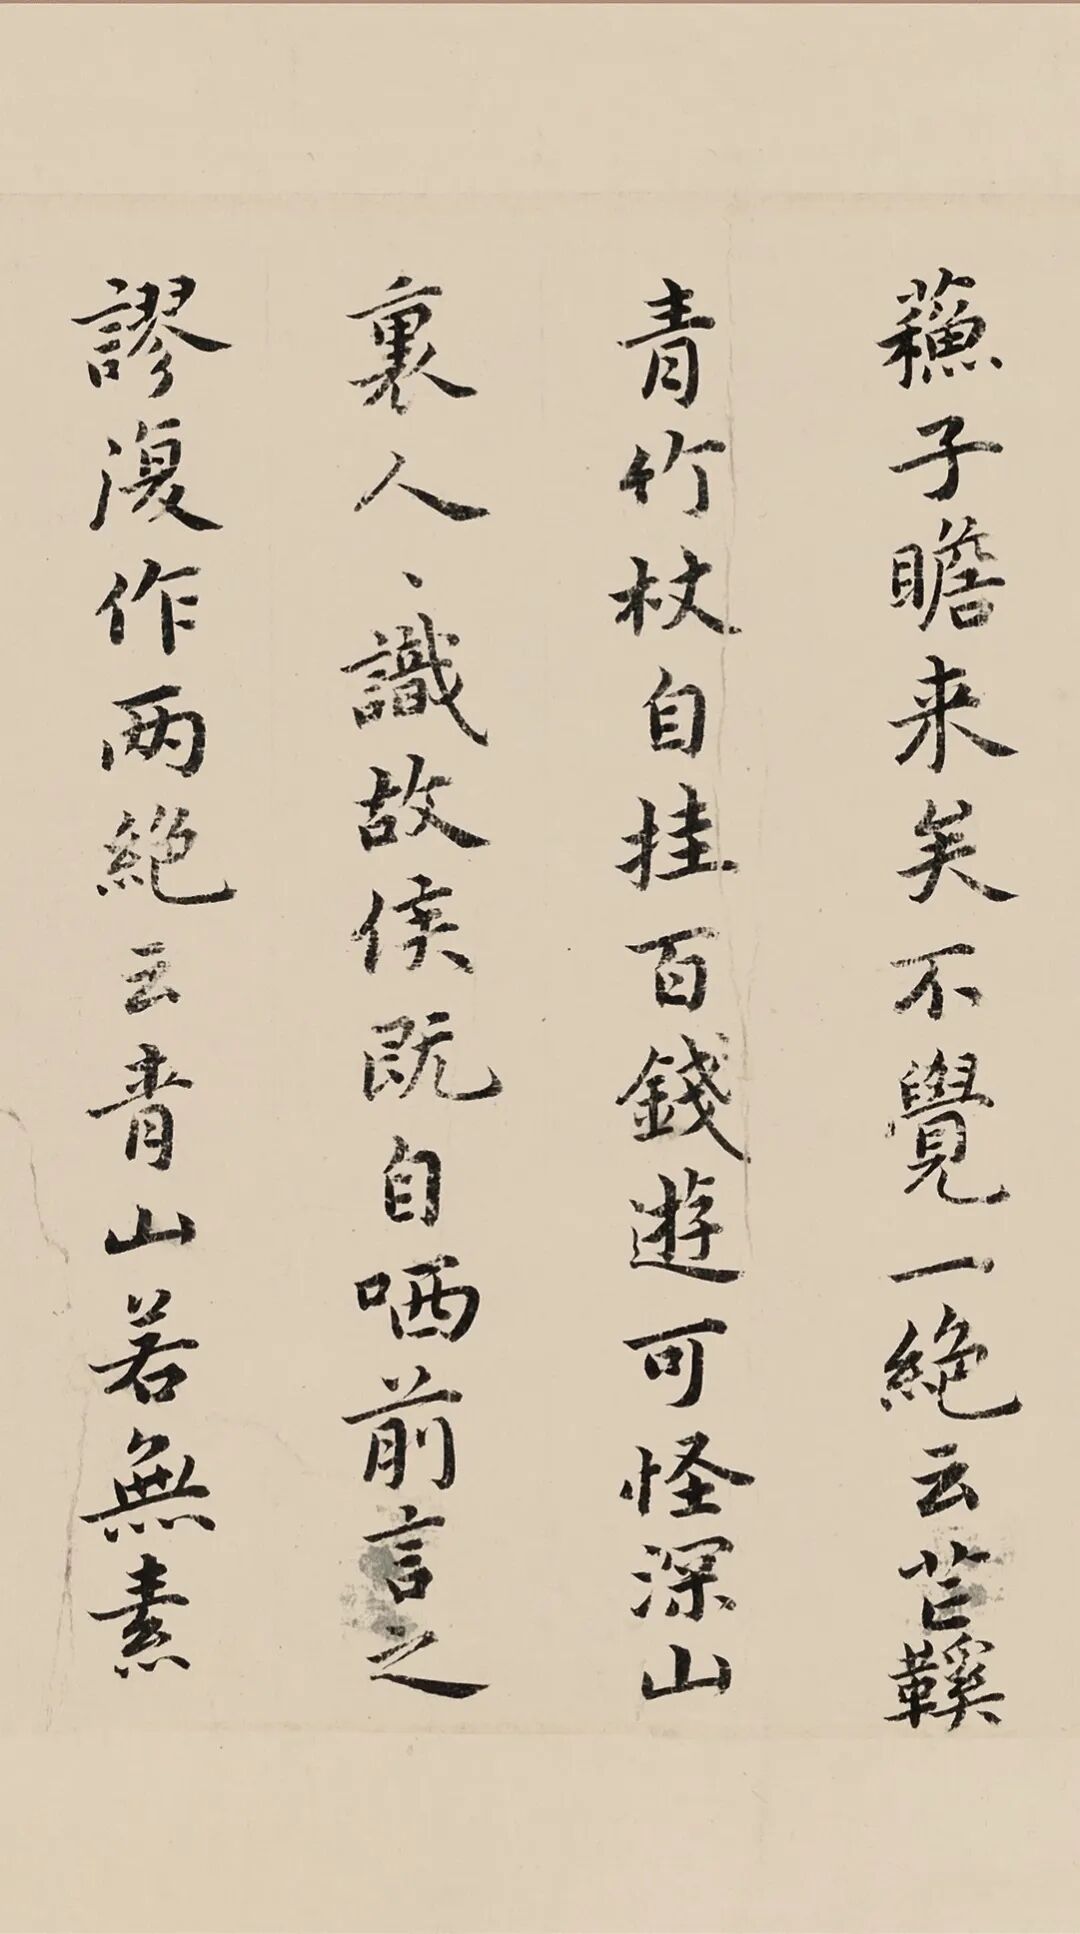 蘓子瞻来矣不覺一絶云芒鞵
青竹杖自挂百錢遊可怪深山
裏人〻識故侯既自哂前言之
謬復作兩絶云青山若無素